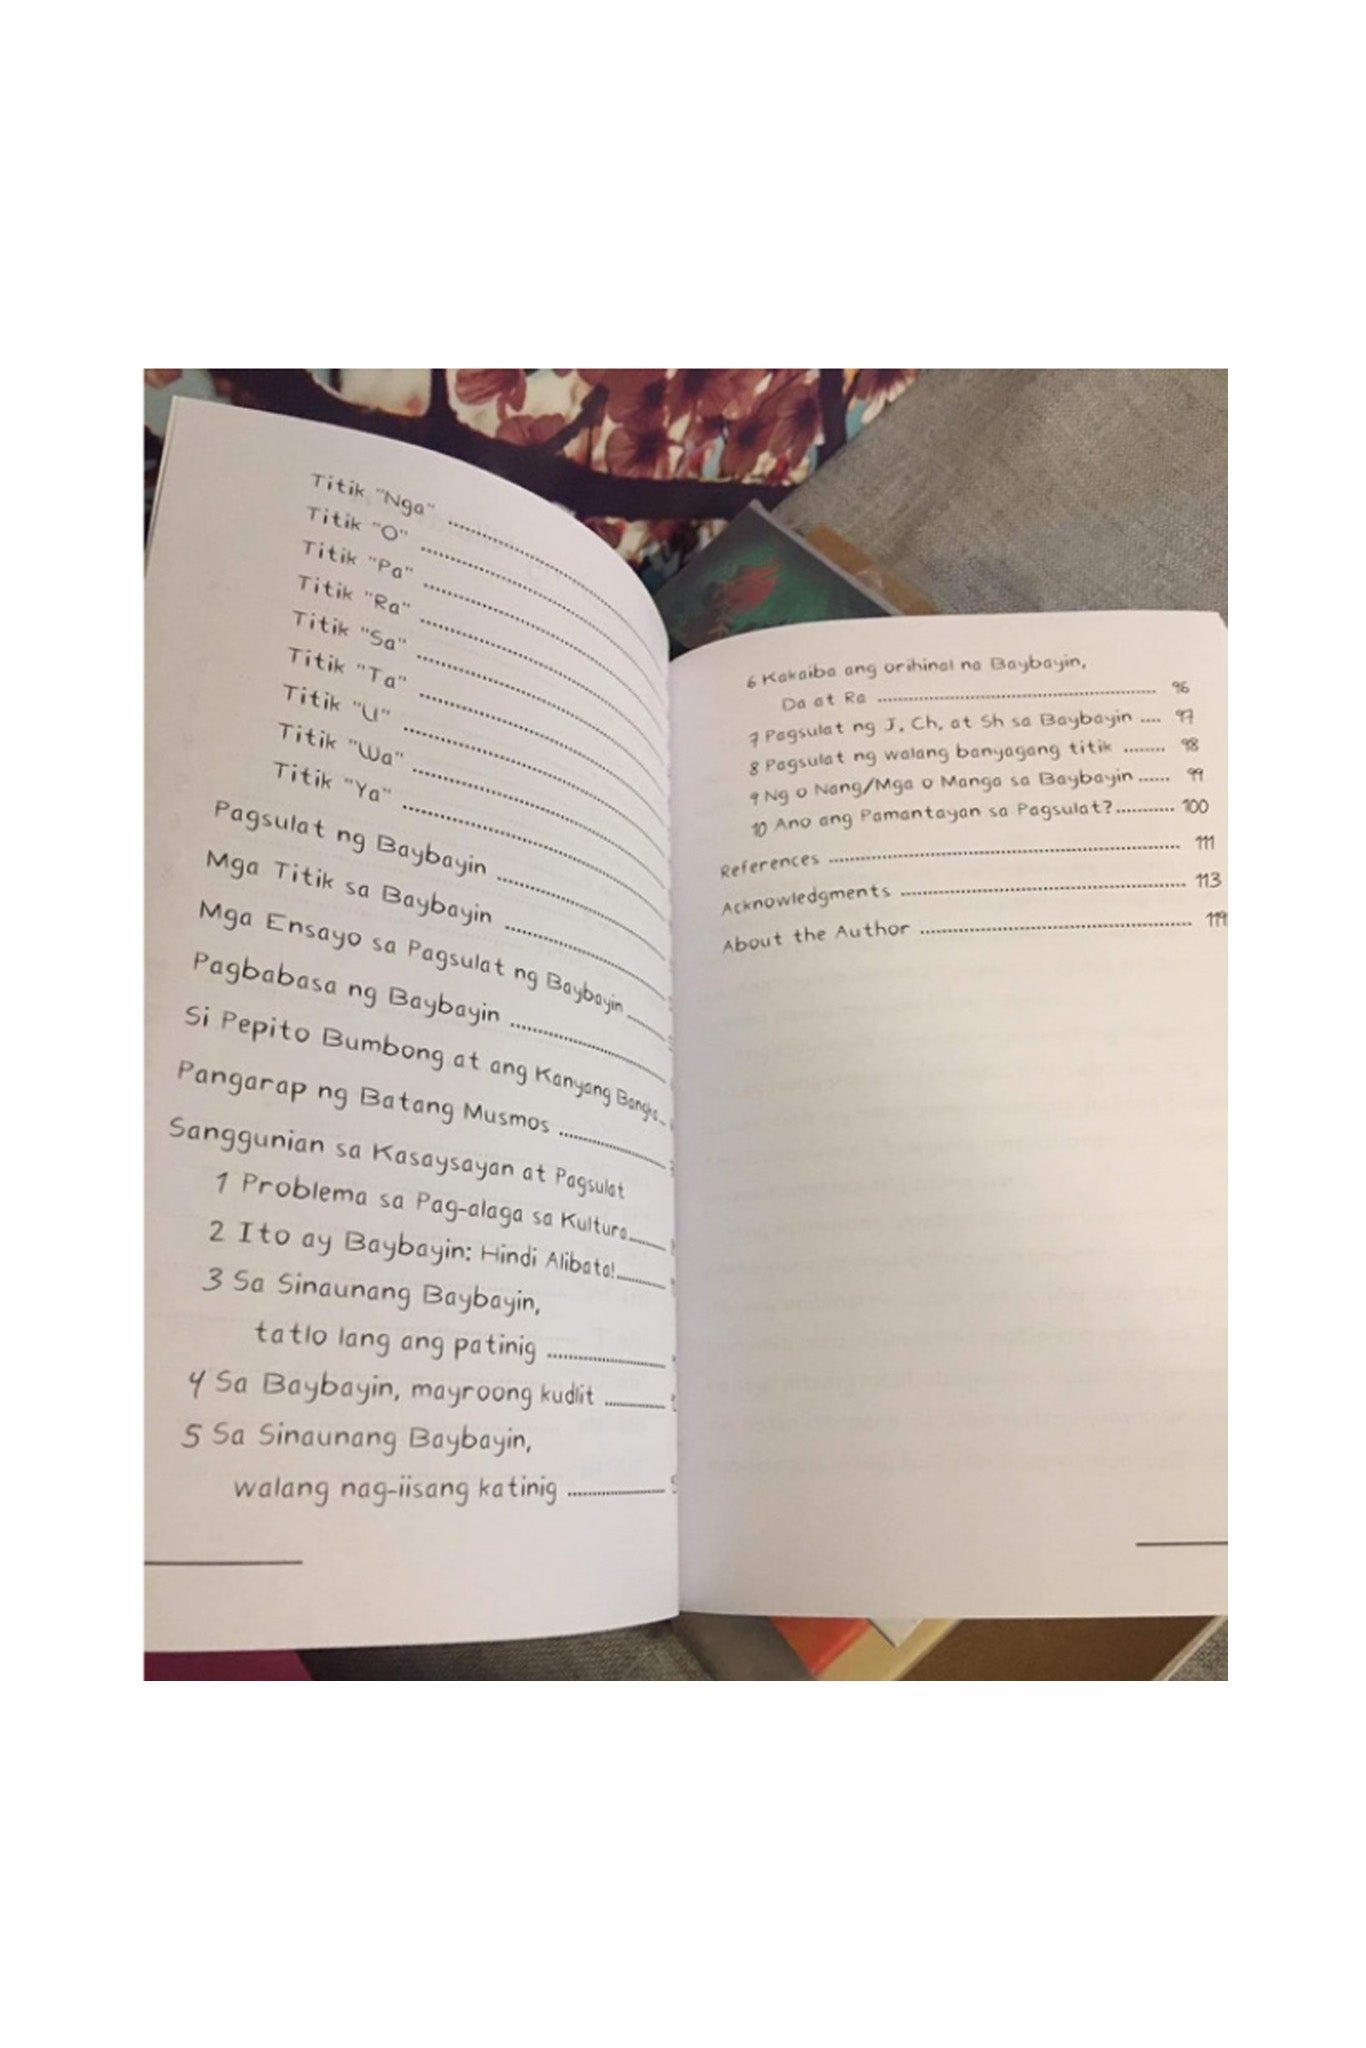 Titik "Nga" ........................
Titik "O" ........................
Titik "Pa" ........................
Titik "Ra" ........................
Titik "Sa" ........................
Titik "Ta" ........................
Titik "U" ........................
Titik "Wa" ........................
Titik "Ya" ........................
Pagsulat ng Baybayin ........................
Mga Titik sa Baybayin ........................
Mga Ensayo sa Pagsulat ng Baybayin ........
Pagbabasa ng Baybayin ........................
Si Pepito Bumbong at ang Kanyang Bangka..
Pangarap ng Batang Musmos ................
Sanggunian sa Kasaysayan at Pagsulat
1 Problema sa Pag-alaga sa Kultura........
2 Ito ay Baybayin: Hindi Alibata!..........
3 Sa Sinaunang Baybayin,
tatlo lang ang patinig ....................
4 Sa Baybayin, mayroong kudlit ............
5 Sa Sinaunang Baybayin,
walang nag-iisang katinig ..................
6 Kakaiba ang orihinal na Baybayin,
Da at Ra ........................ 96
7 Pagsulat ng J, Ch, at Sh sa Baybayin .... 97
8 Pagsulat ng walang banyagang titik ........ 98
9 Ng o Nang/Mga o Manga sa Baybayin ...... 99
10 Ano ang Pamantayan sa Pagsulat?........... 100
References ........................ 111
Acknowledgments ........................ 113
About the Author ........................ 119